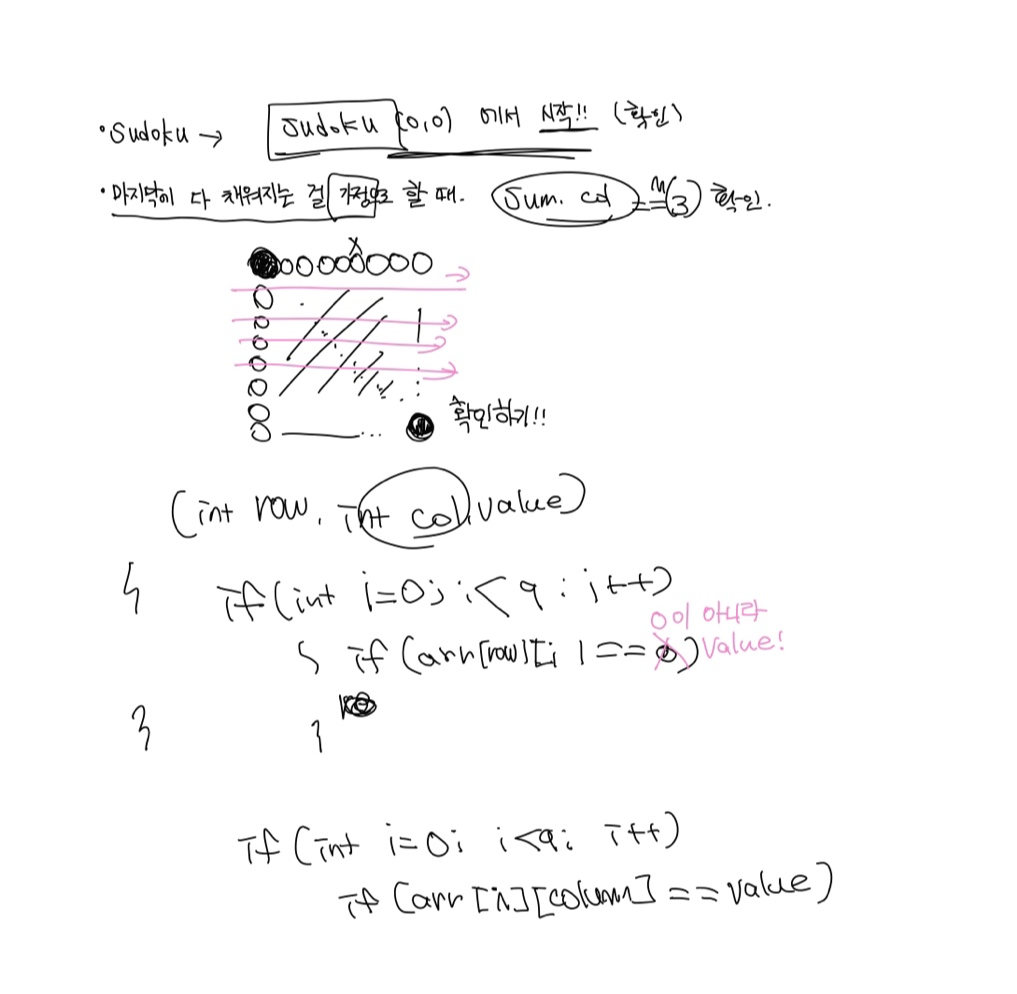 • Sudoku → Sudoku (0,0) 에서 시작!! (확인)
• 마지막이 다 채워지는 걸 가정으로 할 때. Sum. cd == (3) 확인.
x
확인하기!!
(int row, int col, value)
{ if(int i=0; i<9; i++)
0이 아니라
{ if (arr[row][i] == 0) value!
} }
if (int i=0; i<9; i++)
if (arr[i][column] == value)